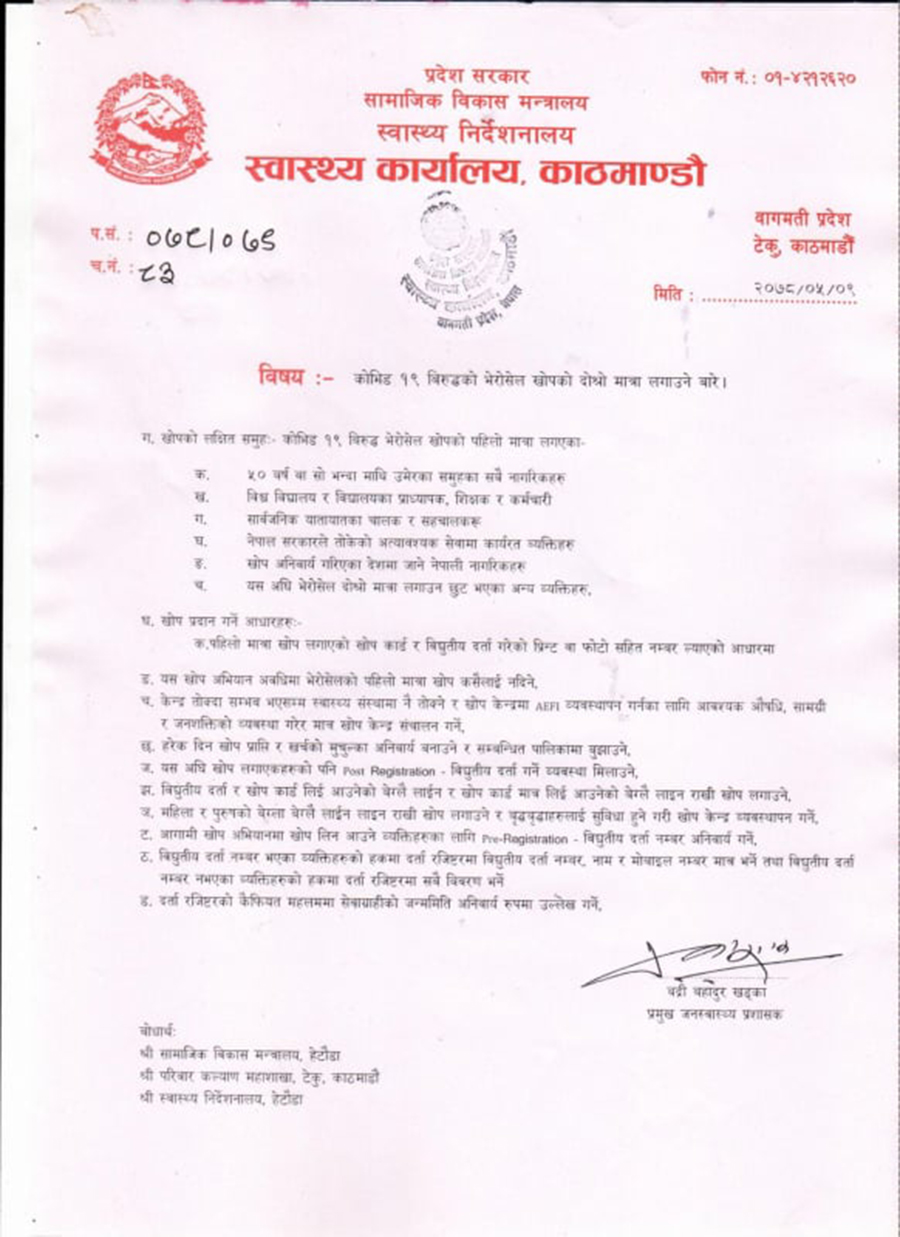 प्रदेश सरकार
सामाजिक विकास मन्त्रालय
स्वास्थ्य निर्देशनालय
स्वास्थ्य कार्यालय, काठमाण्डौ
फोन नं.: ०१-४२१२६२०
वागमती प्रदेश
टेकु, काठमाडौं
प.सं. : ०७८/०७९
च.नं. : ८३
मिति : २०७८/०५/०९
स्वास्थ्य कार्यालय, काठमाण्डौ
वागमती प्रदेश, नेपाल
विषय :- कोभिड १९ विरुद्धको भेरोसेल खोपको दोश्रो मात्रा लगाउने बारे।
ग. खोपको लक्षित समुहः- कोभिड १९ विरुद्ध भेरोसेल खोपको पहिलो मात्रा लगएका-
क. ५० वर्ष वा सो भन्दा माथि उमेरका समुहका सबै नागरिकहरु
ख. विश्व विद्यालय र विद्यालयका प्राध्यापक, शिक्षक र कर्मचारी
ग. सार्वजनिक यातायातका चालक र सहचालकरू
घ. नेपाल सरकारले तोकेको अत्यावश्यक सेवामा कार्यरत व्यक्तिहरु
ङ. खोप अनिवार्य गरिएका देशमा जाने नेपाली नागरिकहरु
च. यस अघि भेरोसेल दोश्रो मात्रा लगाउन छुट भएका अन्य व्यक्तिहरु,
घ. खोप प्रदान गर्ने आधारहरुः-
क.पहिलो मात्रा खोप लगाएको खोप कार्ड र विद्युतीय दर्ता गरेको प्रिन्ट वा फोटो सहित नम्बर ल्याएको आधारमा
ङ. यस खोप अभियान अवधिमा भेरोसेलको पहिलो मात्रा खोप कसैलाई नदिने,
च. केन्द्र तोक्दा सम्भव भएसम्म स्वास्थ्य संस्थामा नै तोक्ने र खोप केन्द्रमा AEFI व्यवस्थापन गर्नका लागि आवश्यक औषधि, सामग्री
र जनशक्तिको व्यवस्था गरेर मात्र खोप केन्द्र संचालन गर्ने,
छ. हरेक दिन खोप प्राप्ति र खर्चको मुचुल्का अनिवार्य बनाउने र सम्बन्धित पालिकामा बुझाउने,
ज. यस अघि खोप लगाएकहरुको पनि Post Registration - विद्युतीय दर्ता गर्ने व्यवस्था मिलाउने,
झ. विद्युतीय दर्ता र खोप कार्ड लिई आउनेको बेग्लै लाईन र खोप कार्ड मात्र लिई आउनेको बेग्लै लाइन राखी खोप लगाउने,
ञ. महिला र पुरुषको बेग्ला बेग्लै लाईन लाइन राखी खोप लगाउने र वृद्धवृद्धाहरुलाई सुविधा हुने गरी खोप केन्द्र व्यवस्थापन गर्ने,
ट. आगामी खोप अभियानमा खोप लिन आउने व्यक्तिहरुका लागि Pre-Registration - विद्युतीय दर्ता नम्बर अनिवार्य गर्ने,
ठ. विद्युतीय दर्ता नम्बर भएका व्यक्तिहरुको हकमा दर्ता रजिष्टरमा विद्युतीय दर्ता नम्बर, नाम र मोबाइल नम्बर मात्र भर्ने तथा विद्युतीय दर्ता
नम्बर नभएका व्यक्तिहरुको हकमा दर्ता रजिष्टरमा सबै विवरण भर्ने
ड. दर्ता रजिष्टरको कैफियत महलममा सेवाग्राहीको जन्ममिति अनिवार्य रुपमा उल्लेख गर्ने,
बद्री बहादुर खड्का
प्रमुख जनस्वास्थ्य प्रशासक
बोधार्थः
श्री सामाजिक विकास मन्त्रालय, हेटौडा
श्री परिवार कल्याण महाशाखा, टेकु, काठमाडौ
श्री स्वास्थ्य निर्देशनालय, हेटौडा